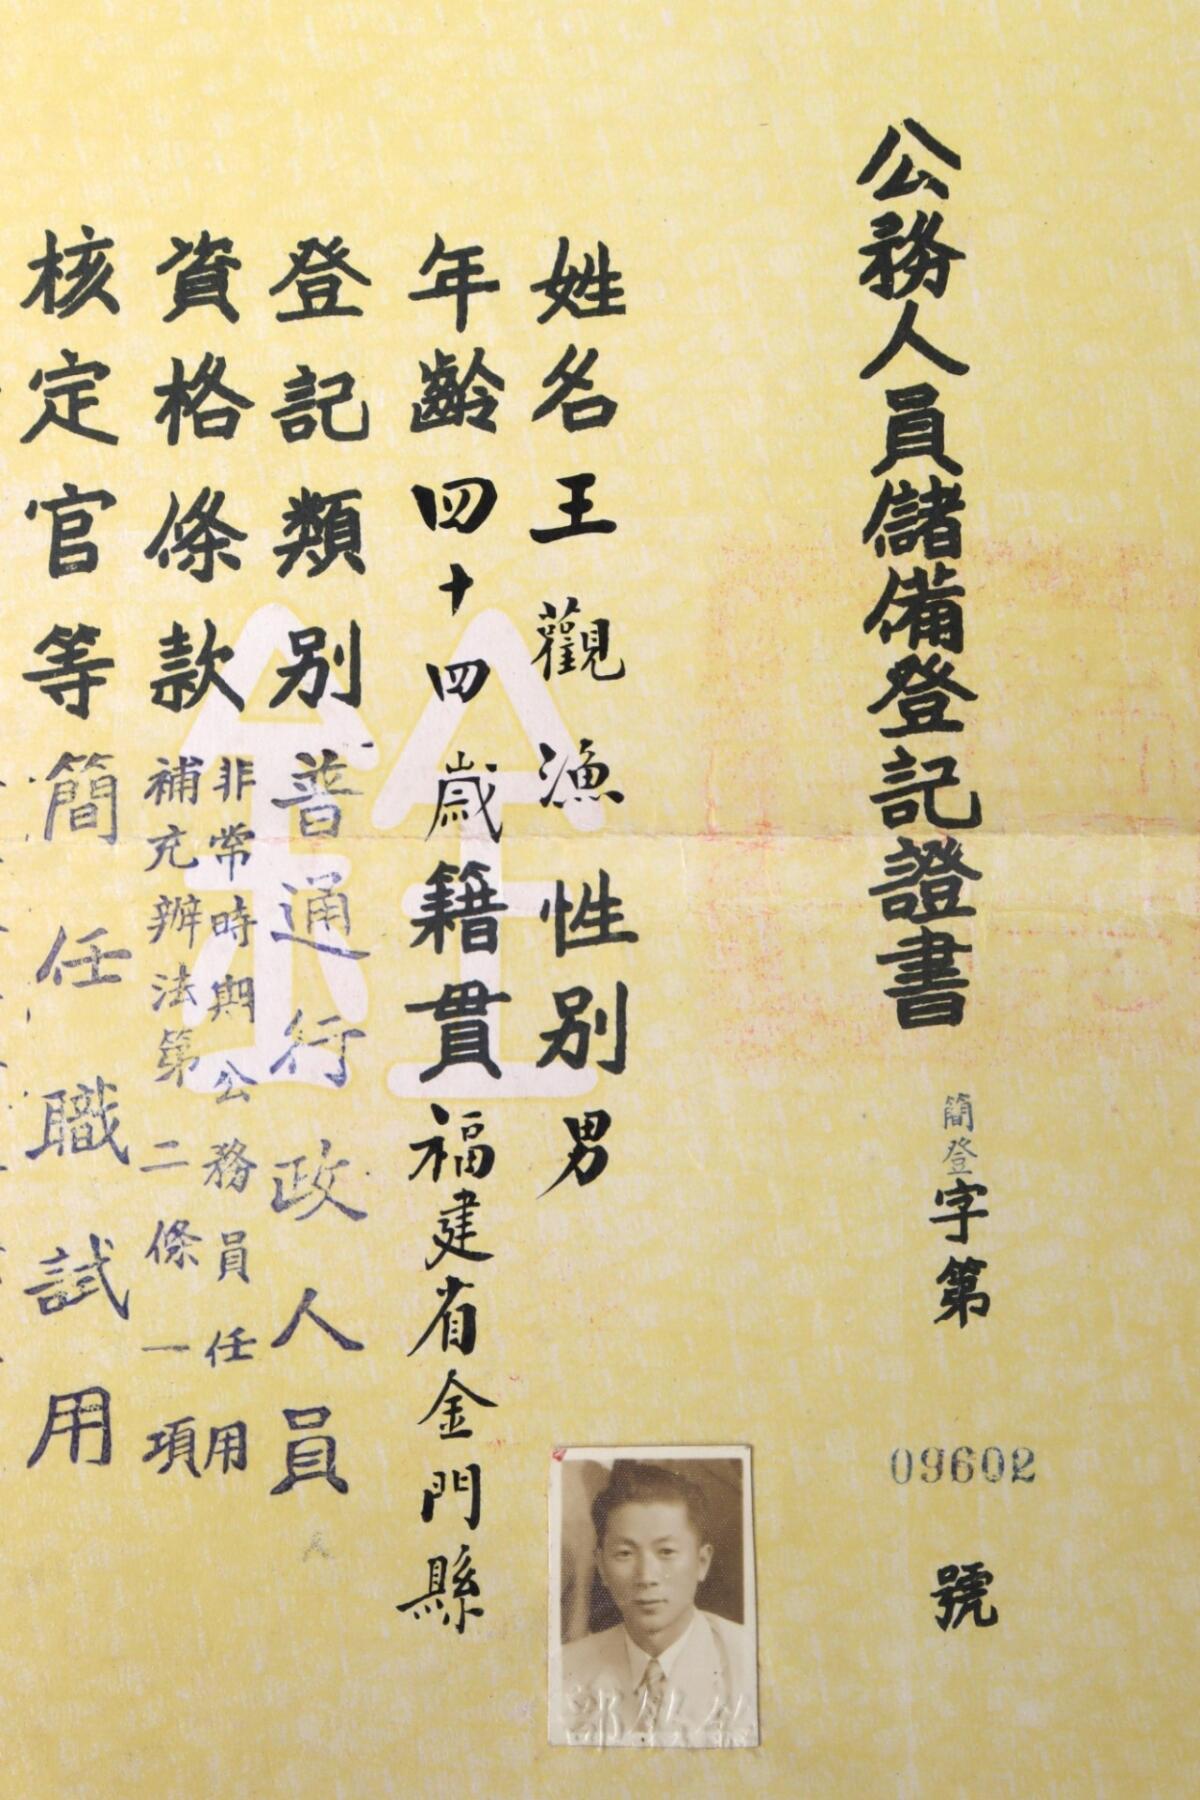 公務人員儲備登記證書
簡登字第 09602 號
姓名王觀漁性別男
年齡四十四歲籍貫福建省金門縣
登記類別普通行政人員
資格條款非常時期公務員任用
補充辦法第二條一項
核定官等簡任職試用